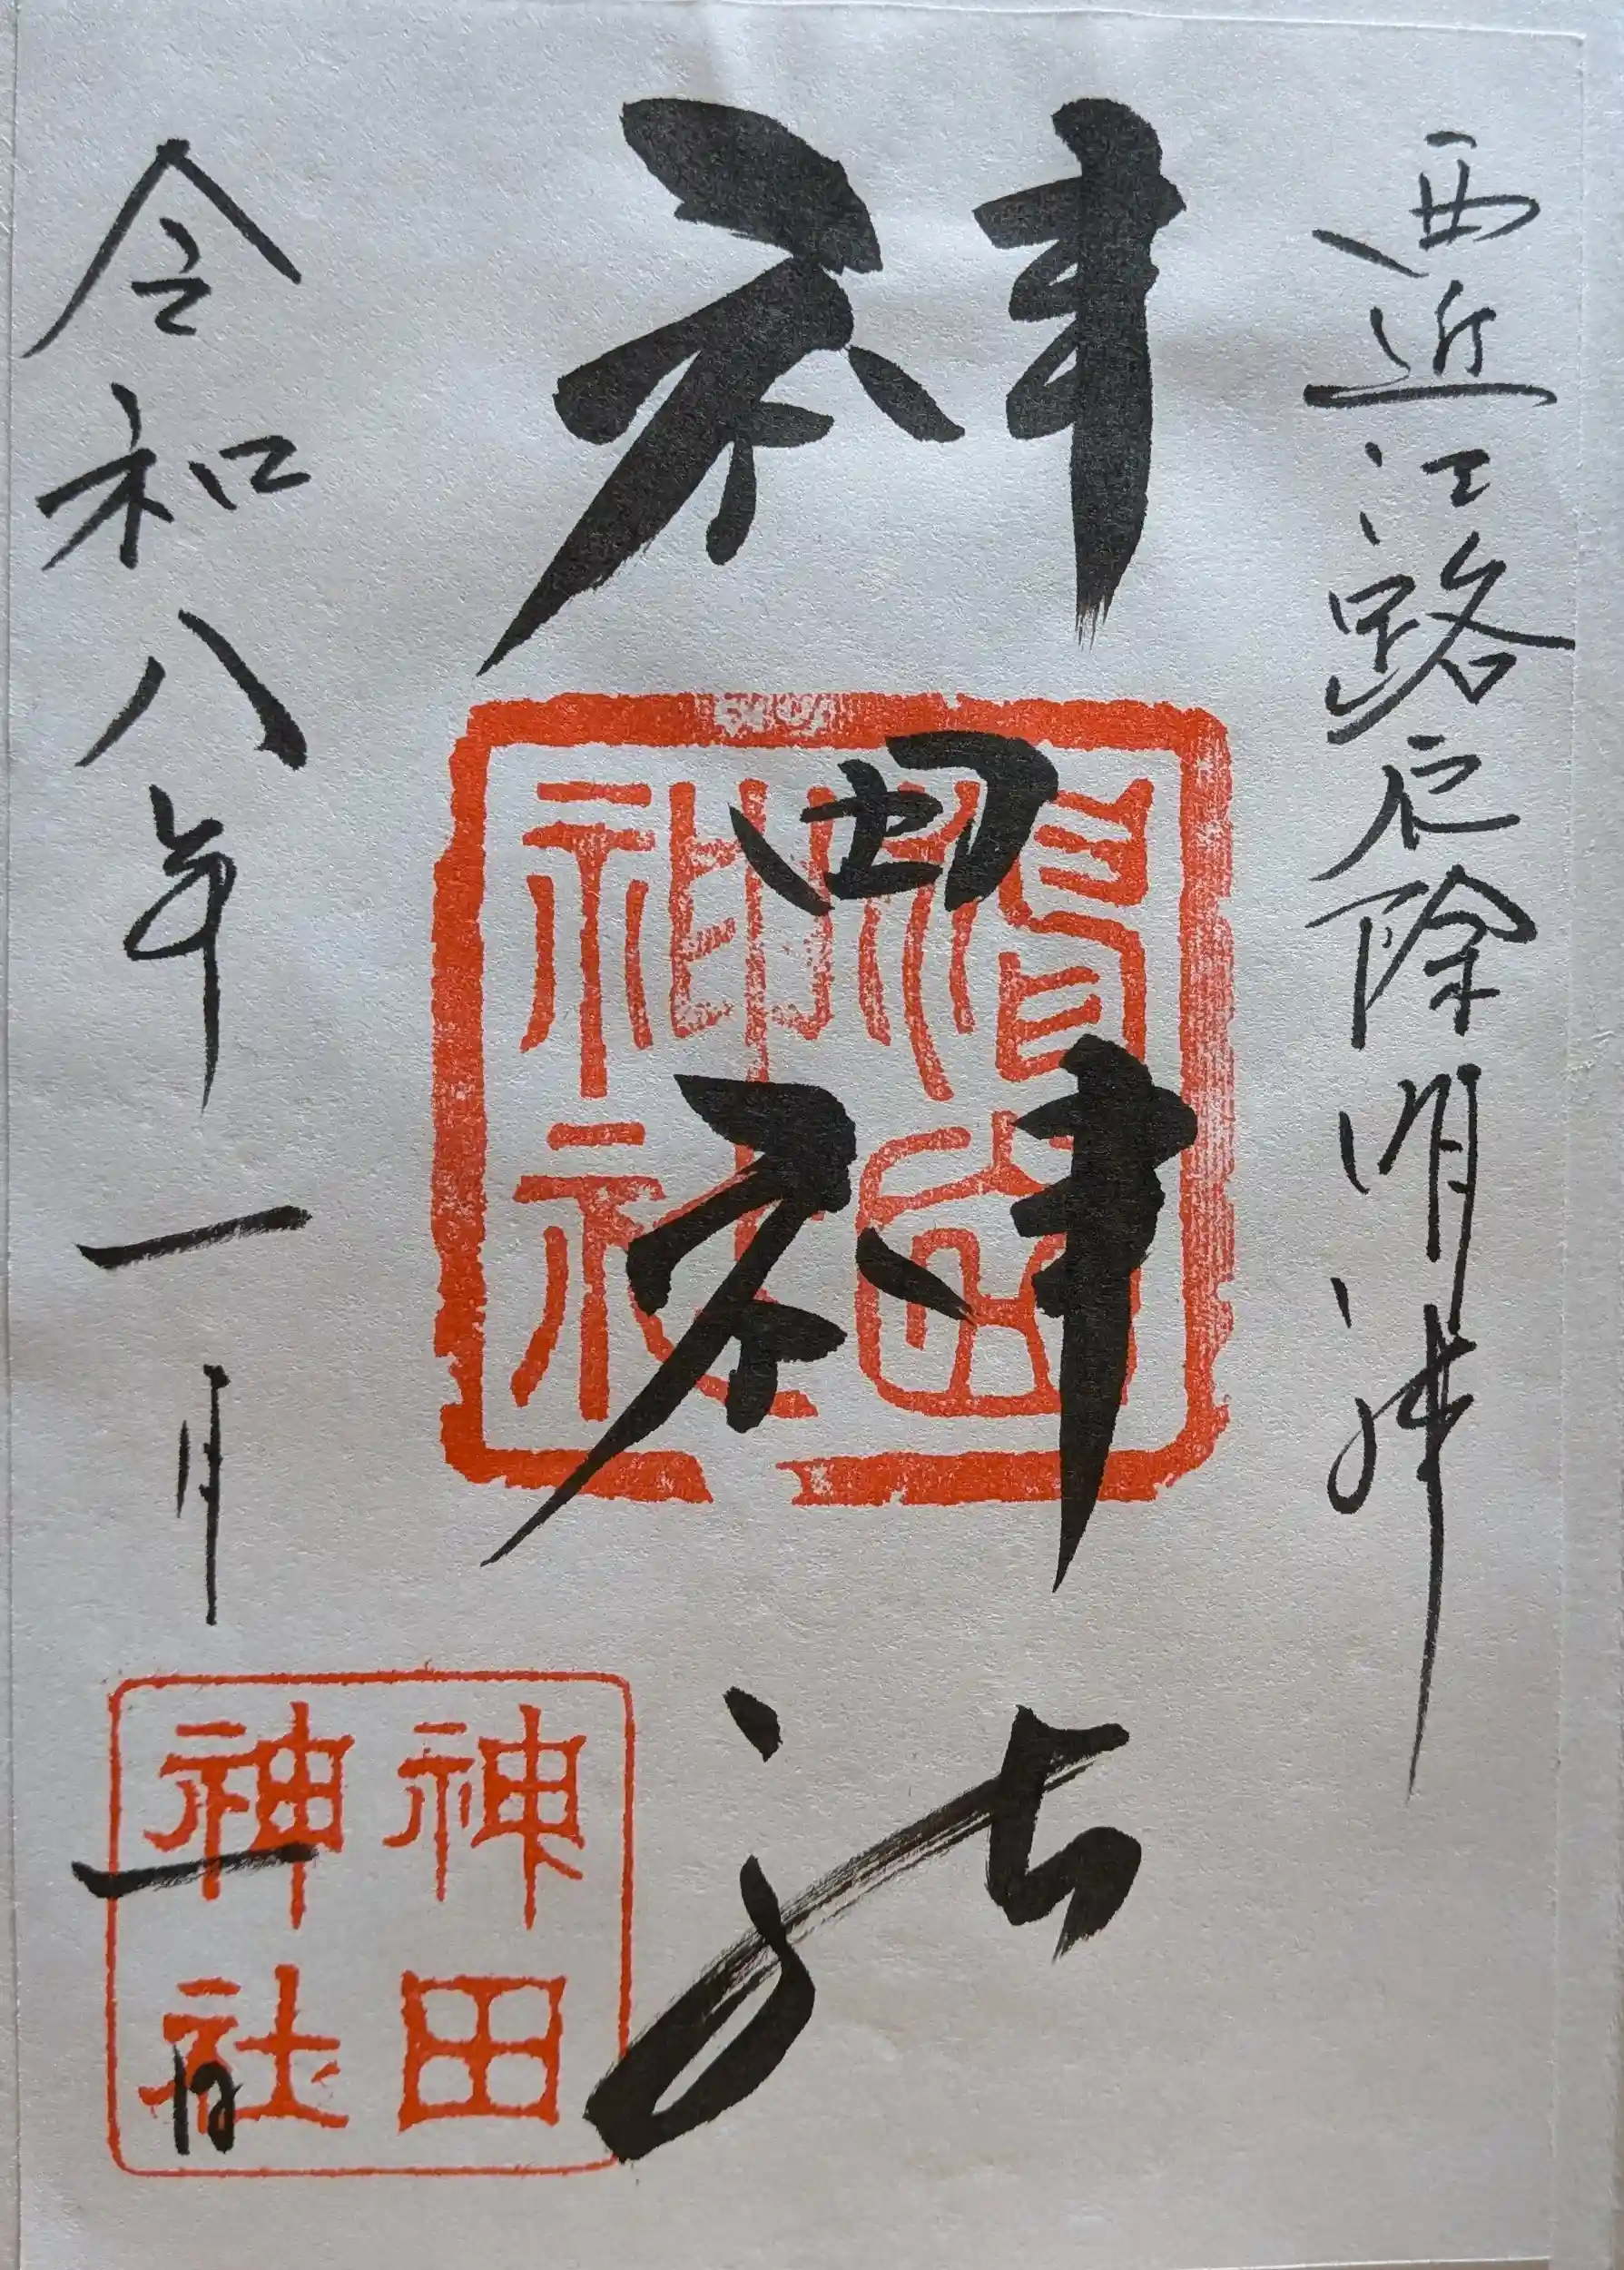 西近江路厄除明神
神田神社
神田神社
令和八年一月一日
神田神社